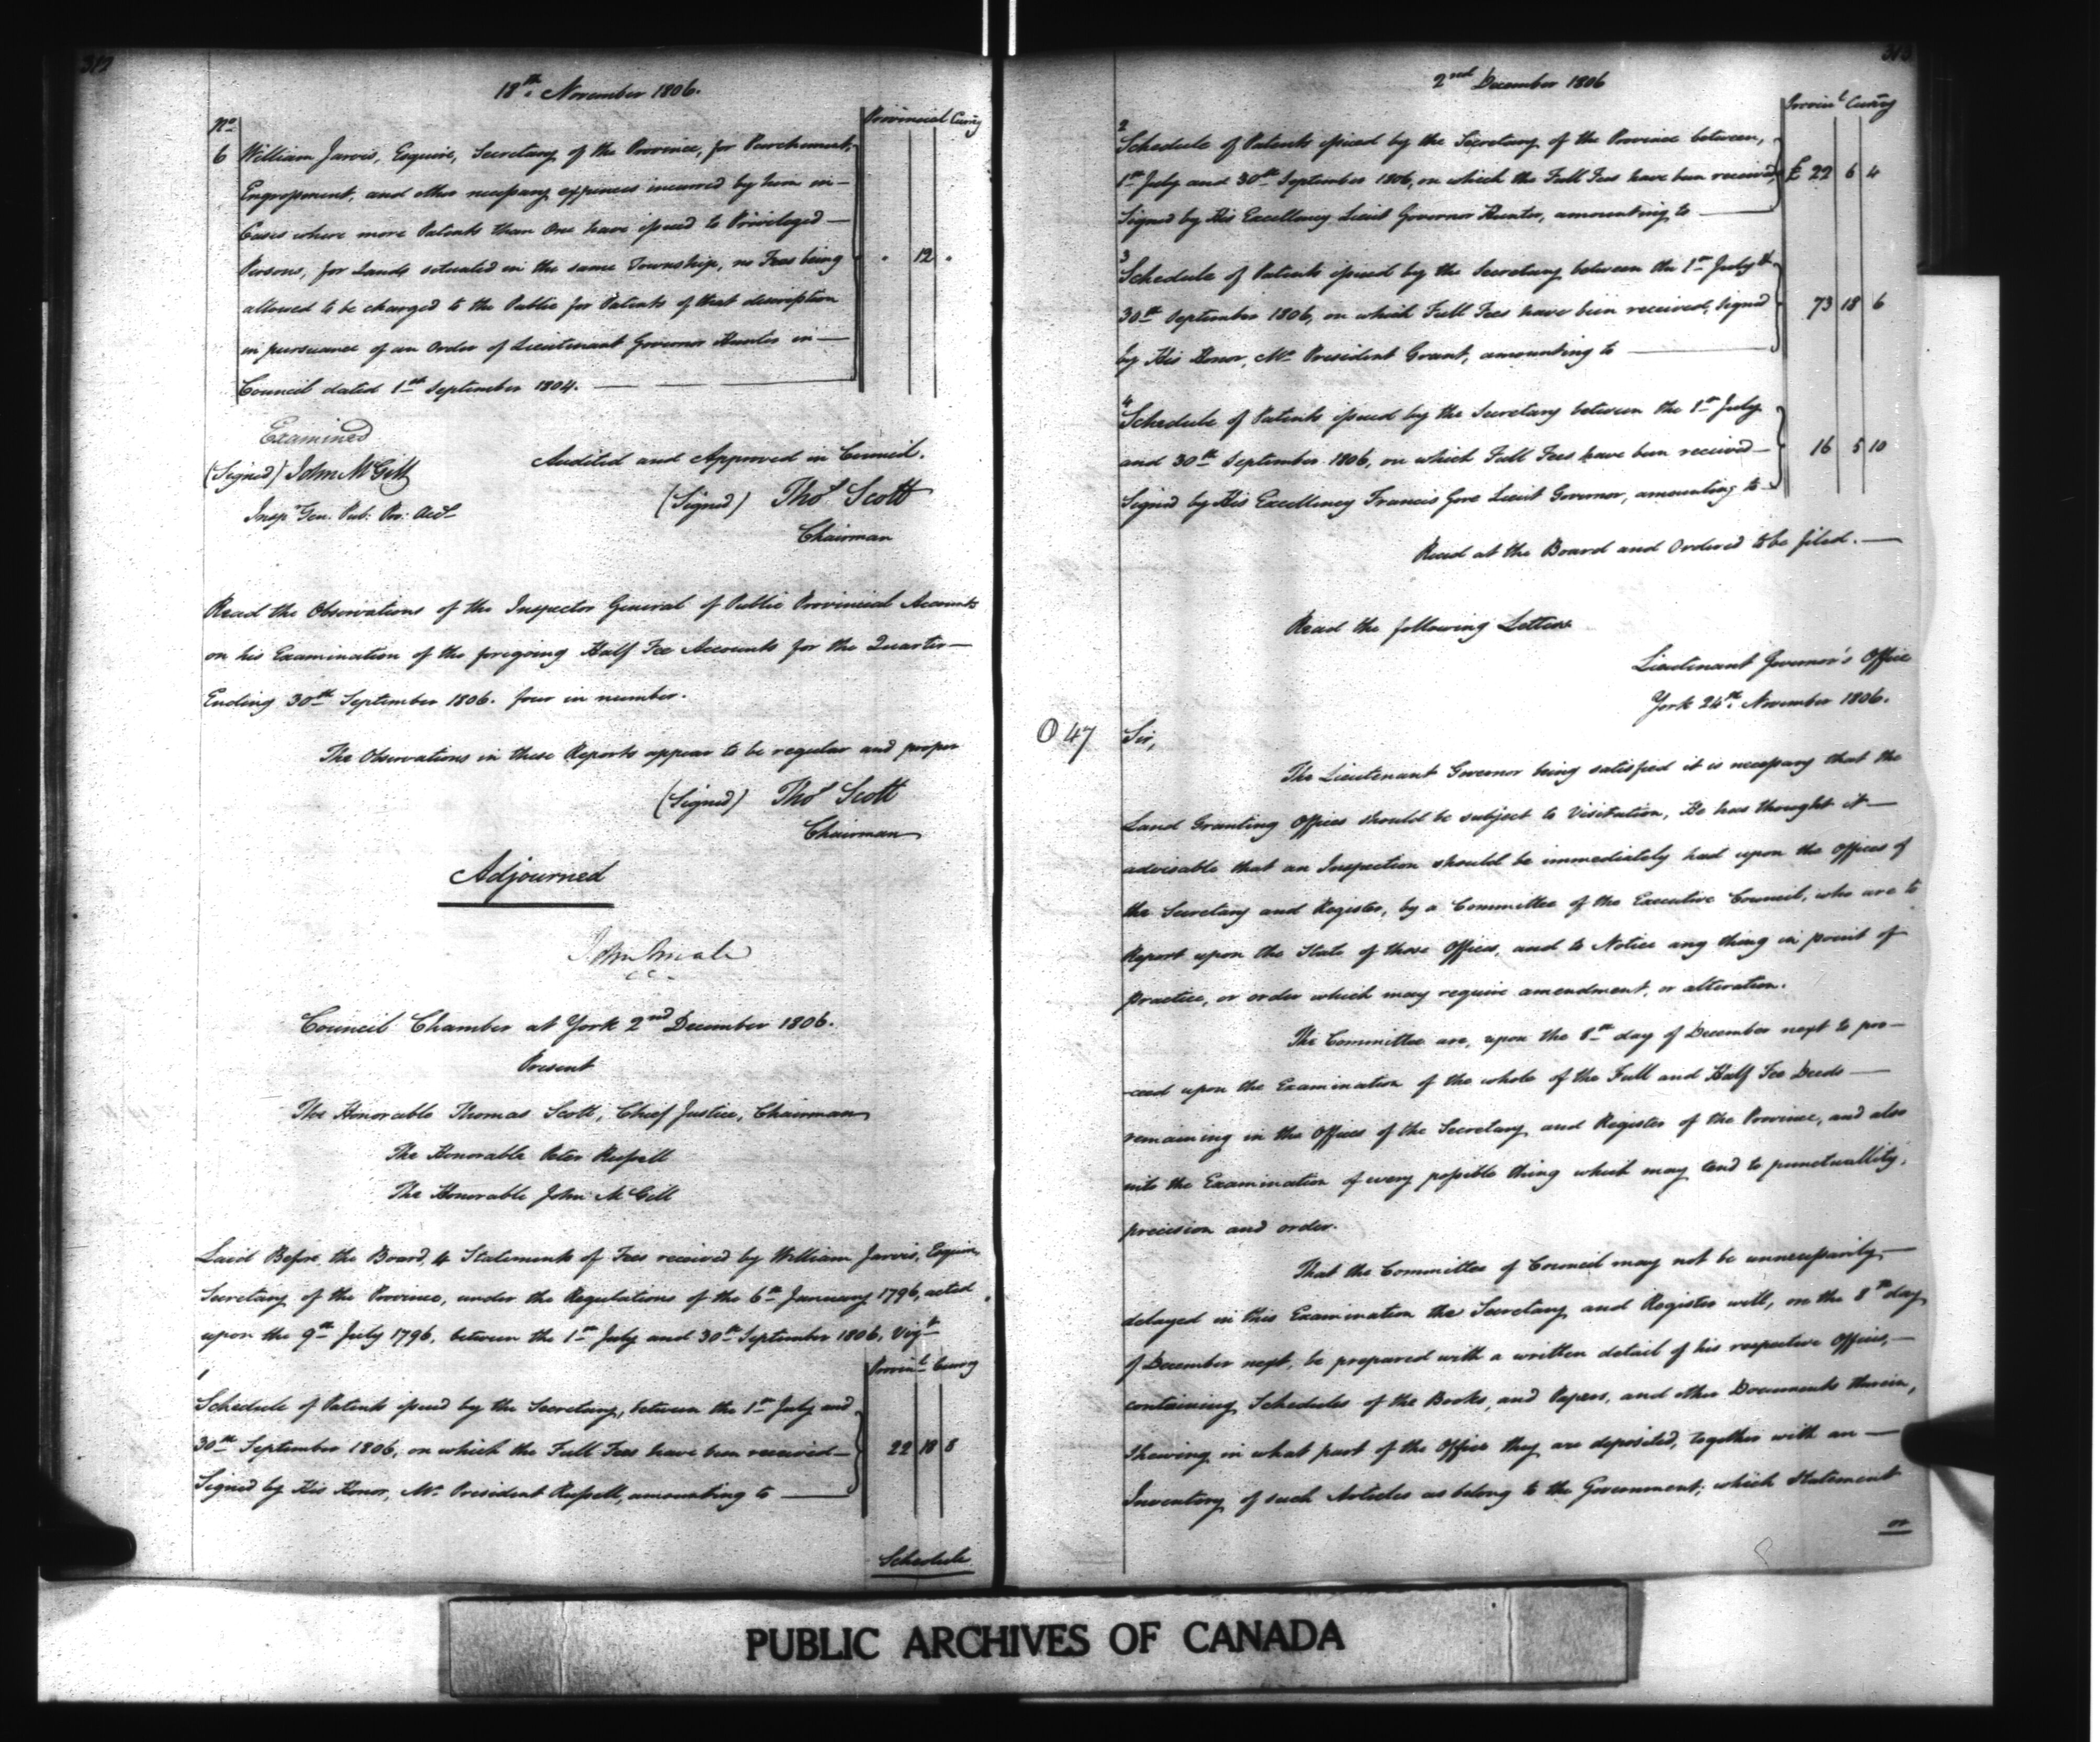 312
18th November 1806.
No
Provincial Curry
6 William Jarvis, Esquire, Secretary of the Province, for Parchment,
Engrossment, and other necessary expences incurred by him in
Cases where more Patents than One have issued to Privileged
Persons, for Lands situated in the same Township, no Fees being
12
allowed to be charged to the Public for Patents of that description
in pursuance of an Order of Lieutenant Governor Hunter in
Council dated 1st September 1804.
Examined
(Signed) John McGill
Insp. Gen. Pub: Pro: Acct
Audited and Approved in Council.
(Signed) Thos Scott
Chairman
Read the Observations of the Inspector General of Public Provincial Accounts
on his Examination of the foregoing Half Fee Accounts for the Quarter
Ending 30th September 1806. four in number.
The Observations in these Reports appear to be regular and proper
(Signed) Thos Scott
Chairman
Adjourned
John Small
C C
Council Chamber at York 2nd December 1806.
Present
The Honorable Thomas Scott, Chief Justice, Chairman
The Honorable Peter Russell
The Honorable John McGill
Laid Before the Board, 4 Statements of Fees received by William Jarvis, Esquire
Secretary of the Province, under the Regulations of the 6th January 1796, acted
upon the 9th July 1796, between the 1st July and 30th September 1806, Vizt
Provinl Curry
1
Schedule of Patents issued by the Secretary, between the 1st July and
30th September 1806, on which the Full Fees have been received
22 18 8
Signed by His Honor, Mr President Russell, amounting to
Schedule
313
2nd December 1806
Provinl Curry
2
Schedule of Patents issued by the Secretary of the Province between,
1st July and 30th September 1806, on which the Full Fees have been received,
£ 22 6 4
Signed by His Excellency Lieut Governor Hunter, amounting to
3
Schedule of Patents issued by the Secretary between the 1st July &
30th September 1806, on which Full Fees have been received, signed
73 18 6
by His Honor, Mr President Grant, amounting to
4
Schedule of Patents issued by the Secretary between the 1st July
and 30th September 1806, on which Full Fees have been received
16 5 10
Signed by His Excellency Francis Gore Lieut Governor, amounting to
Read at the Board and Ordered to be filed.
Read the following Letters
Lieutenant Governor's Office
York 24th November 1806.
O 47
Sir,
The Lieutenant Governor being satisfied it is necessary that the
Land Granting Offices should be subject to Visitation, He has thought it
advisable that an Inspection should be immediately had upon the Offices of
the Secretary and Register, by a Committee of the Executive Council, who are to
Report upon the State of those Offices, and to Notice any thing in point of
practice, or order which may require amendment, or alteration.
The Committee are, upon the 8th day of December next to pro-
-ceed upon the Examination of the whole of the Full and Half Fee Deeds
remaining in the Offices of the Secretary and Register of the Province, and also
into the Examination of every possible thing which may tend to punctuallity,
precision and order.
That the Committee of Council may not be unnecessarily
delayed in this Examination the Secretary and Register will, on the 8th day
of December next, be prepared with a written detail of his respective Offices,
containing Schedules of the Books, and Papers, and other Documents therein,
shewing in what part of the Office they are deposited, together with an
Inventory of such Articles as belong to the Government; which Statement
or
PUBLIC ARCHIVES OF CANADA